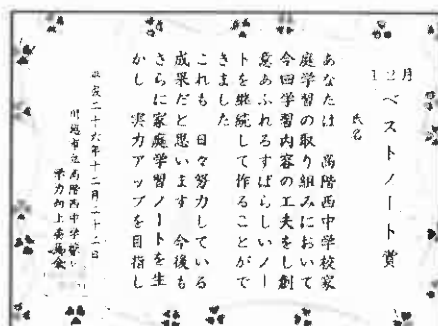 12月 ベストノート賞
氏名
あなたは 高階西中学校家
庭学習の取り組みにおいて
今回学習内容の工夫をし創
意あふれるすばらしいノー
トを継続して作ることがで
きました
これも 日々努力している
成果だと思います 今後も
さらに家庭学習ノートを生
かし 実力アップを目指し
平成二十六年十二月二十二日
川越市立高階西中学校
学力向上委員会